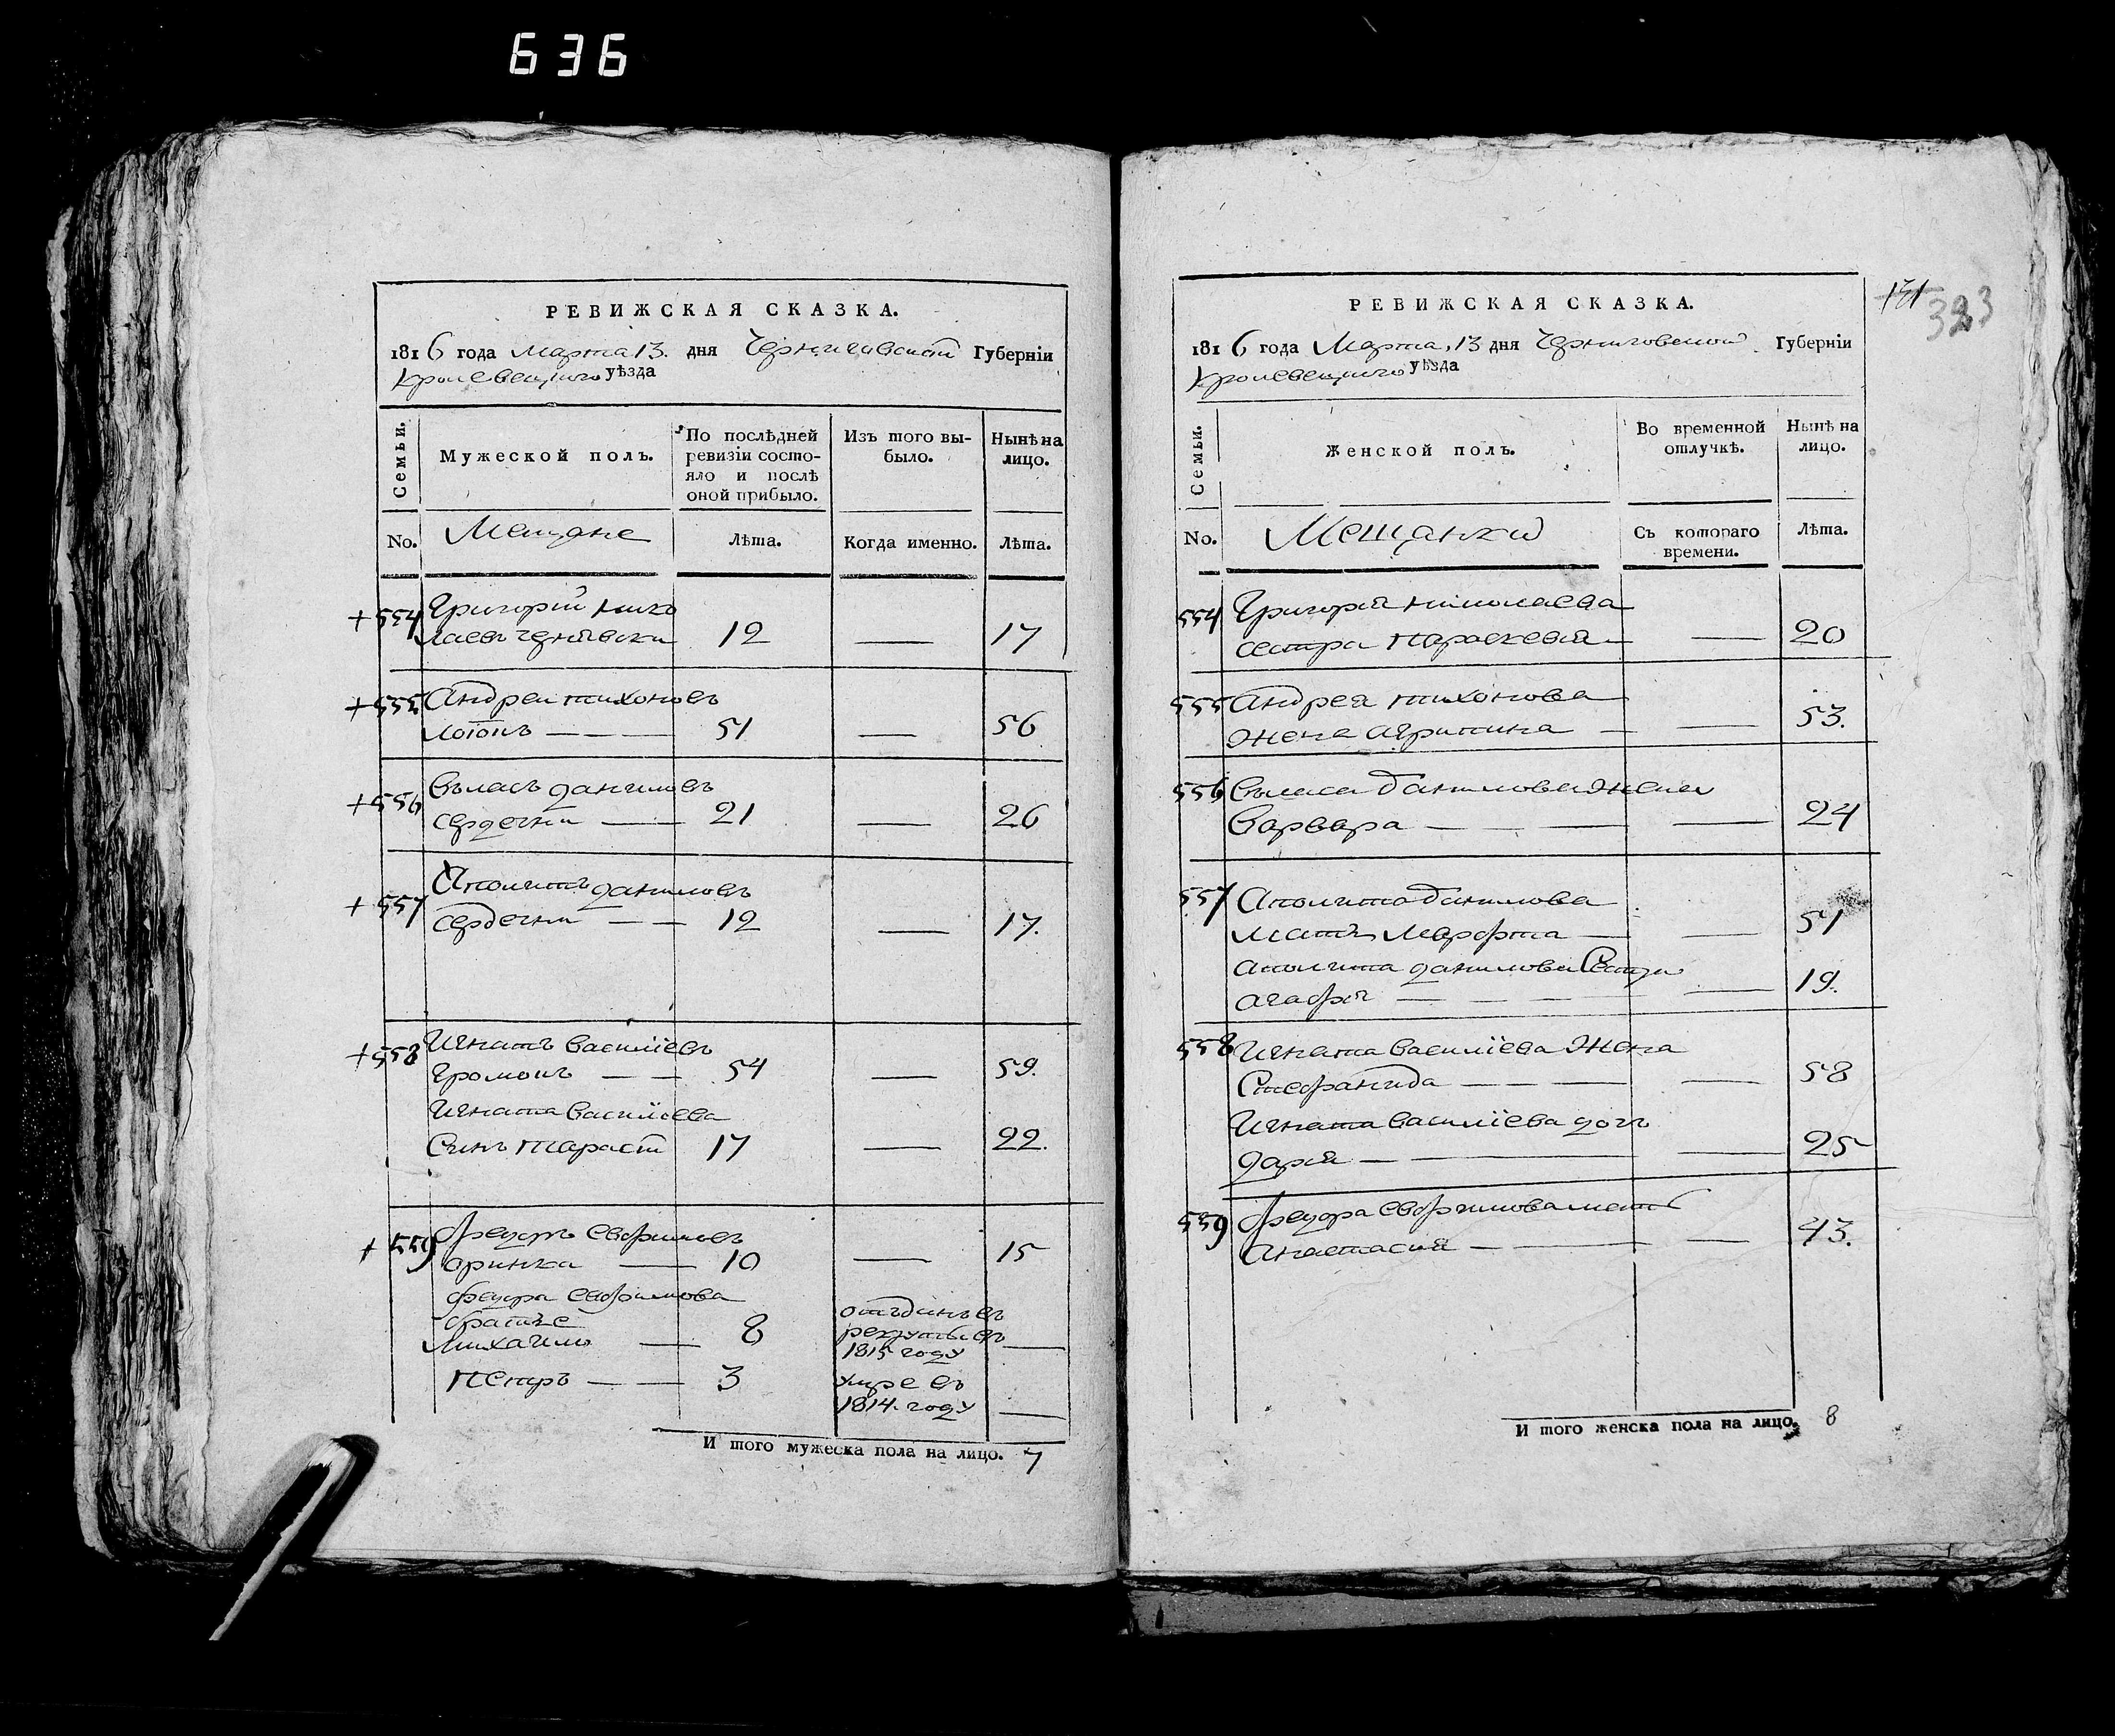 636
РЕВИЖСКАЯ СКАЗКА.
1816 года Марта 13. дня Черниговской Губерніи
Кролевецкого уѣзда
Семьи.
Мужеской полъ.
По послѣдней
ревизіи состо-
яло и послѣ
оной прибыло.
Изъ того вы-
было.
Нынѣ на
лицо.
No.
Мещане
Лѣта.
Когда именно.
Лѣта.
+ 554 Григорій Нико
лаевъ 12 — 17
+ 555 Андреи тихоновъ
51 — 56
+ 556 Вьласъ даниловъ
сердечни — 21 — 26
+ 557 Аполитъ даниловъ
сердечни — — 12 — 17.
+ 558 Игнатъ василіевъ
— — 54 — 59.
Игната василіева
Синъ тараси 17 — 22.
+ 559 федоръ евфимовъ
оринка — 10 — 15
федора евфимова
братъе
Михаило — 8
отъданъ въ
рекруты въ
1815 году —
петръ — — 3
умре въ
1814. году —
И того мужеска пола на лицо. 7
РЕВИЖСКАЯ СКАЗКА.
131
323
1816 года Марта, 13 дня Черниговской Губерніи
Кролевецкого уѣзда
Семьи.
Женской полъ.
Во временной
отлучкѣ.
Нынѣ на
лицо.
No.
Мещанки
Съ котораго
времени.
Лѣта.
554 Григорія николаева
сестра Параскевія — — 20
555 Андрея тихонова
жена агрипина — — 53.
556 Вьласа данилова жена
варвара — — — — 24
557 Аполита данилова
мать марфта — — 51
аполита данилова Сестра
агафія — — — — 19.
558 Игната василіева жена
Стефанида — — — — 58
Игната василіева дочъ
дарія — — — 25
559 федора евфимова мать
Анастасія — — — 43.
И того женска пола на лицо. 8